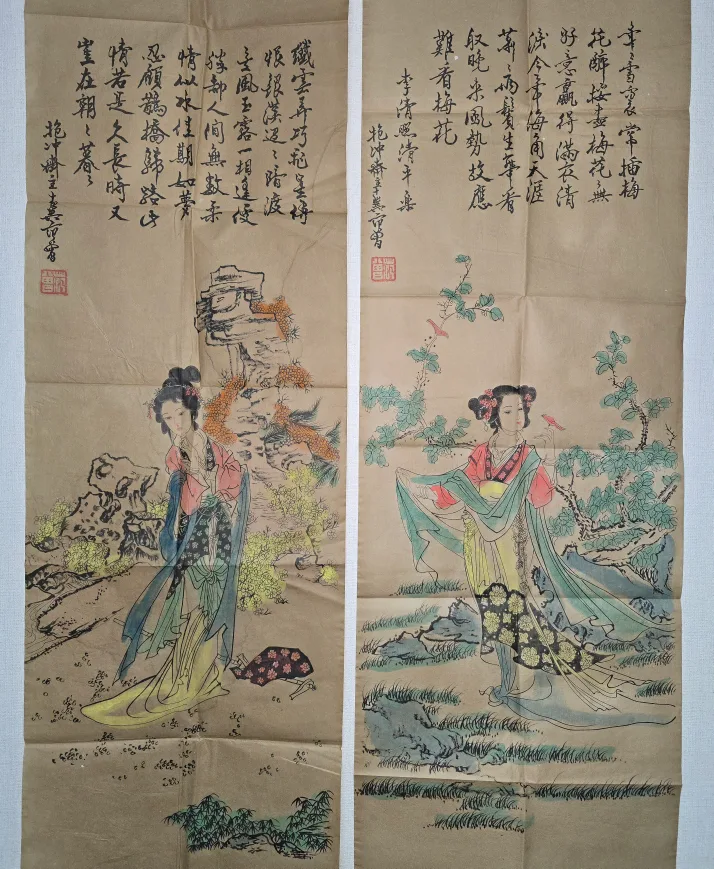 年〻雪裏常插梅
花醉挼盡梅花無
好意贏得滿衣清
淚今年海角天涯
蕭〻兩鬢生華看
取晚來風勢故應
難看梅花
李清照清平樂
抱冲齋主十翼范曾
纖雲弄巧飛星傳
恨銀漢迢〻暗渡
金風玉露一相逢便
勝却人間無數柔
情似水佳期如夢
忍顧鵲橋歸路兩
情若是久長時又
豈在朝〻暮〻
抱冲齋主十翼范曾